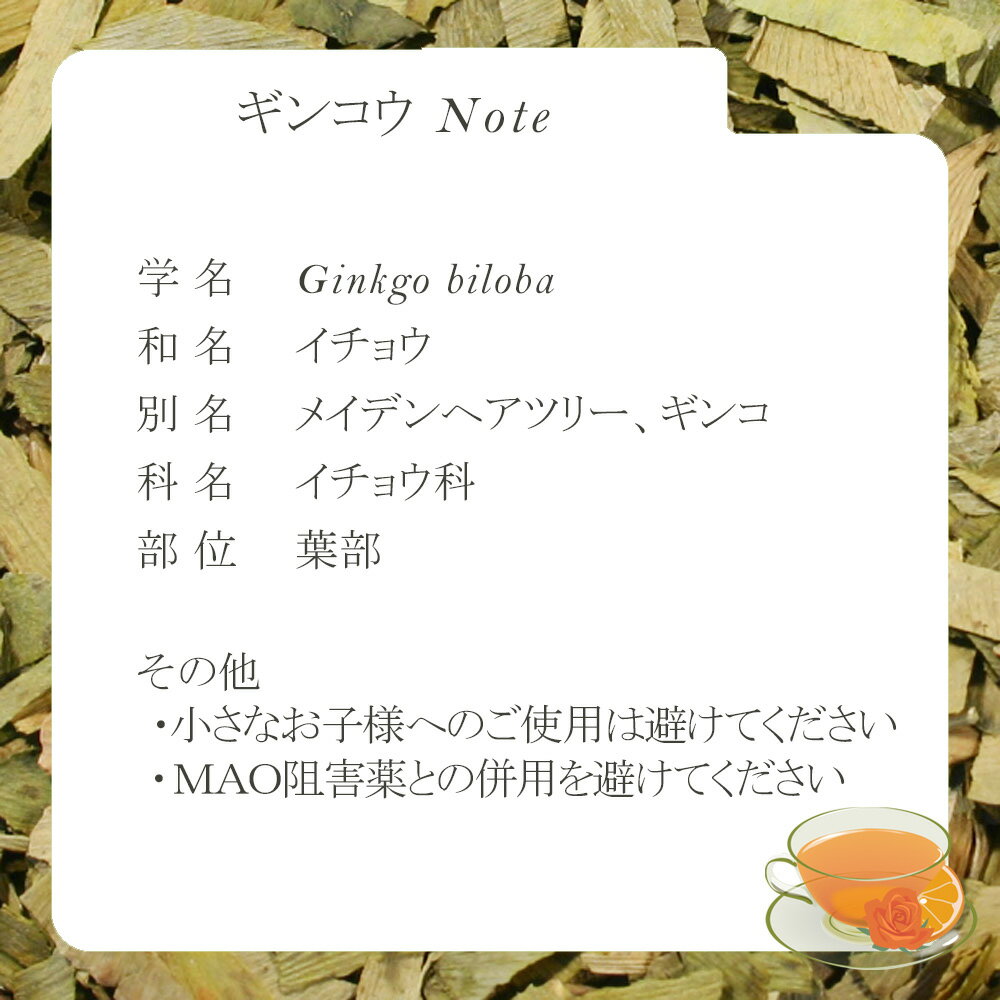 ギンコウ Note
学名 Ginkgo biloba
和名 イチョウ
別名 メイデンヘアツリー、ギンコ
科名 イチョウ科
部位 葉部
その他
・小さなお子様へのご使用は避けてください
・MAO阻害薬との併用を避けてください